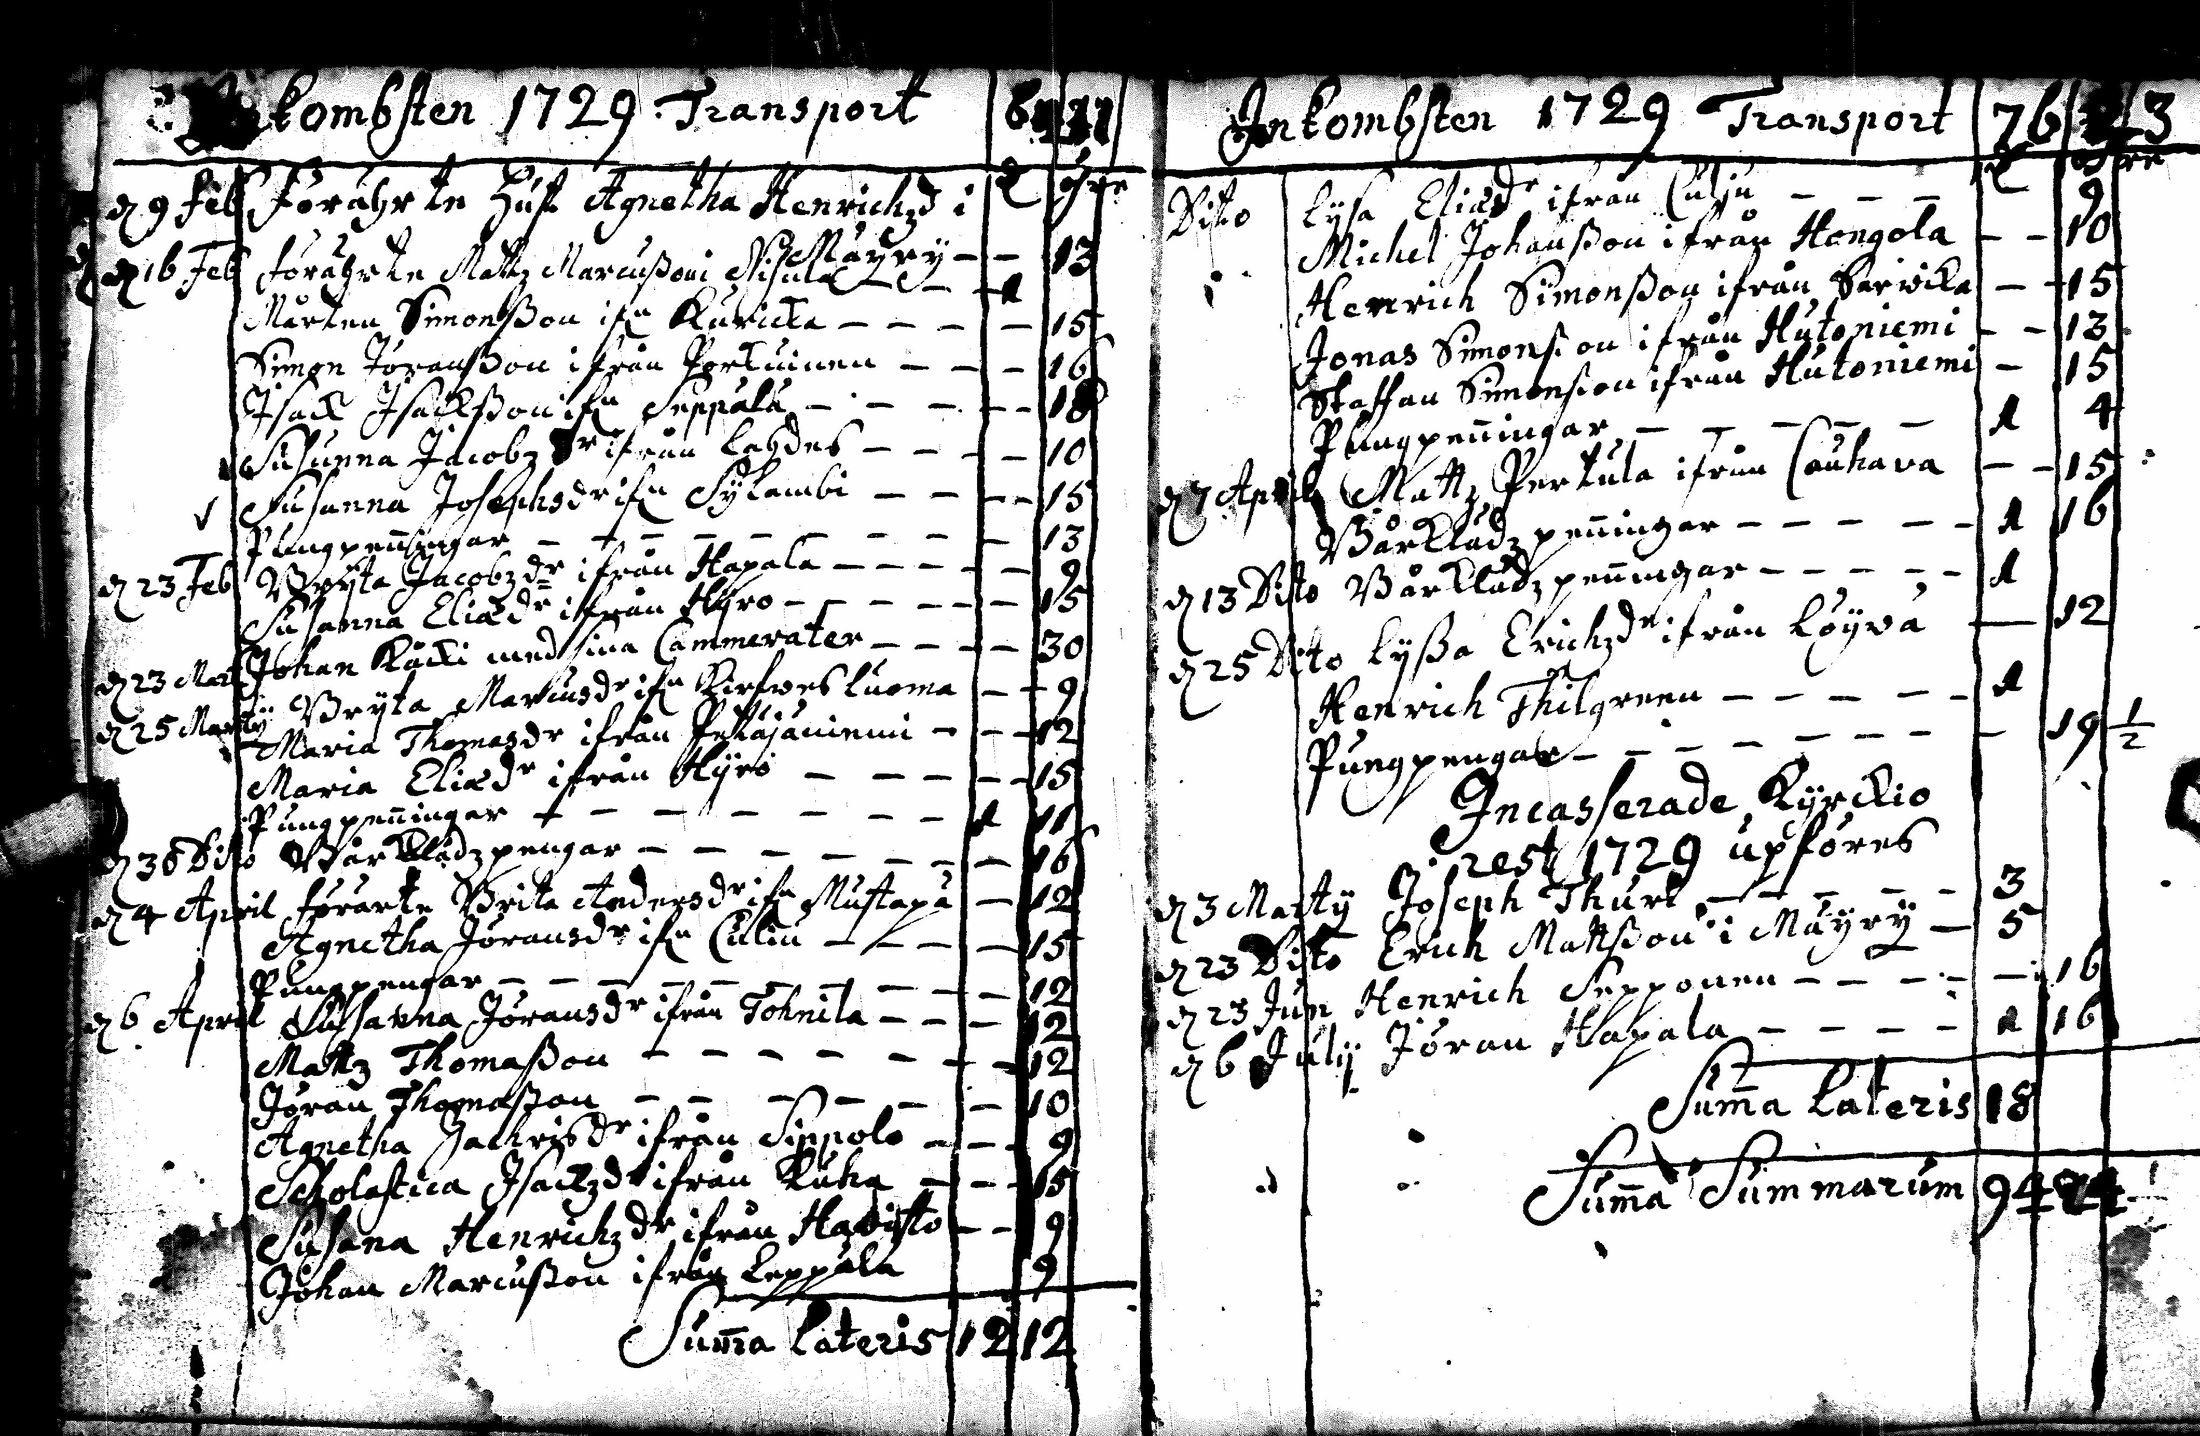 kombsten 1729. Transport
đ öre
d 9 Feb Förährte Hust Agnetha Henrichzd i
Mäyry – – 13
d 16 Feb Förährte Mattz Marcusson i Nisula – – – 1
Mårten Simonsson ifn Kuricka – – – – 15
Simon Jöransson ifrån Porkuinen – – – 16
Isack Isacksson ifn Seppälä – – – – – 18
Susanna Jacobz dr ifrån Lahdes – – – – 10
Susanna Josephsdr ifn Sÿkambi – – – – 15
Pungpenningar – – – – – – – – 13
d 23 Feb Brÿta Jacobzdr ifrån Hapala – – – – – 9
Susanna Eliædr ifrån Hÿro – – – – – – 15
d 23 Mart Johan Käcki med sina Cammerater – – – – 30
Brÿta Marcusdr ifn Kirfwesluoma – – 9
d 25 Martÿ Maria Thomasdr ifrån Petäjäniemi – – – 12
Maria Eliædr ifrån Hÿrö – – – – – 15
Pungpenningar – – – – – – – 1 11
d 30 Dito Wårklädzpengar – – – – – – – – 16
d 4 April Förärte Brita Andersdr ifn Mustapä – 12
Agnetha Jöransdr ifn Culiu – – – – 15
Pungpengar – – – – – – – – 12
d 6 April Susanna Jöransdr ifrån Tohnila – – – 12
Mattz Thomasson – – – – – – – – 12
Jöran Thomasson – – – – – – – 10
Agnetha Zachrisdr ifrån Sippola – – – 9
Scholastica Isackzdr ifrån Kuha – – – 15
Susana Henrichzdr ifrån Hawisto – – 9
Johan Marcusson ifrån Leppälä 9
Suma Lateris 12 12
Inkombsten 1729 Transport 76 3
đ öre
Dito Lysa Eliædr ifrån Culju – – – 9
Michel Johansson ifrån Hongola – – 10
Henrich Simonsson ifrån Sarwicka – – 15
Jonas Simonsson ifrån Hutoniemi – – 13
Staffan Simonsson ifrån Hutoniemi – 15
Pungpenningar – – – – – 1 4
d 7 April Mattz Pertula ifrån Cauhava – – 15
Wårklädz penningar – – – – – 1 16
d 13 Dito Wårklädz penningar – – – – – 1
d 25 Dito Lyssa Erichzdr ifrån Löyvä – 12
Henrich Thilgreen – – – – – 1
Pungpengar – – – – – – – 19 1/2
Incasserade Kÿrckio
rest 1729 upföres
d 3 Martÿ Joseph Thurl – – – – 3
d 23 Dito Erich Mattsson i Mäyrÿ – 5
d 23 Jun Henrich Sepponen – – – – – 16
d 6 Julÿ Jöran Hapala – – – – 1 16
Suma Lateris 18
Suma Summarum 94 24